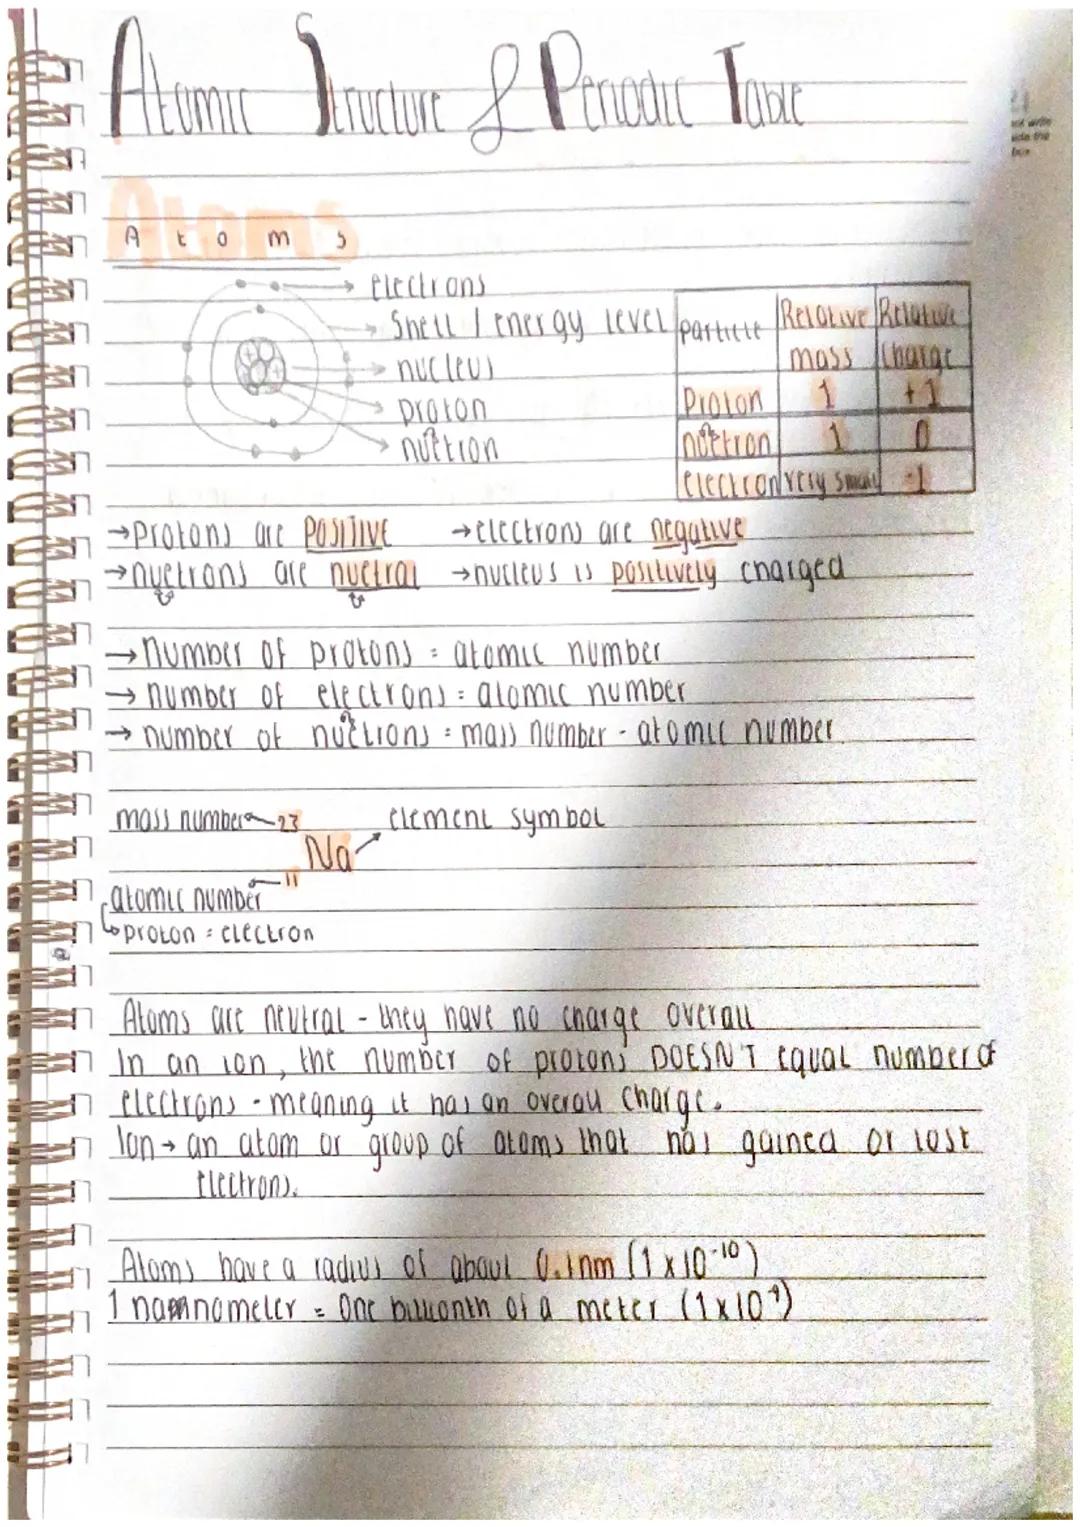 Atomic Structure & Periodic Table
Atoms
Atoms
electrons
Shell / energy level
nucleus
proton
nuetron
particle Relative mass Relative charge
Proton 1 +1
nuetron 1 0
electron very small -1
→Protons are POSITIVE →electrons are negative
→nuetrons are nuetral →nucleus is positively charged
→ number of protons = atomic number
→ number of electrons = atomic number
→ number of nuetrons = mass number - atomic number
mass number 23 element symbol
Na
11
atomic number
↳ proton = electron
Atoms are neutral - they have no charge overall
In an ion, the number of protons DOESN'T equal number of
electrons - meaning it has an overall charge.
Ion → an atom or group of atoms that has gained or lost
electrons.
Atoms have a radius of about 0.1nm (1 x 10⁻¹⁰)
1 nanometer = One billionth of a meter (1x10⁻⁹)